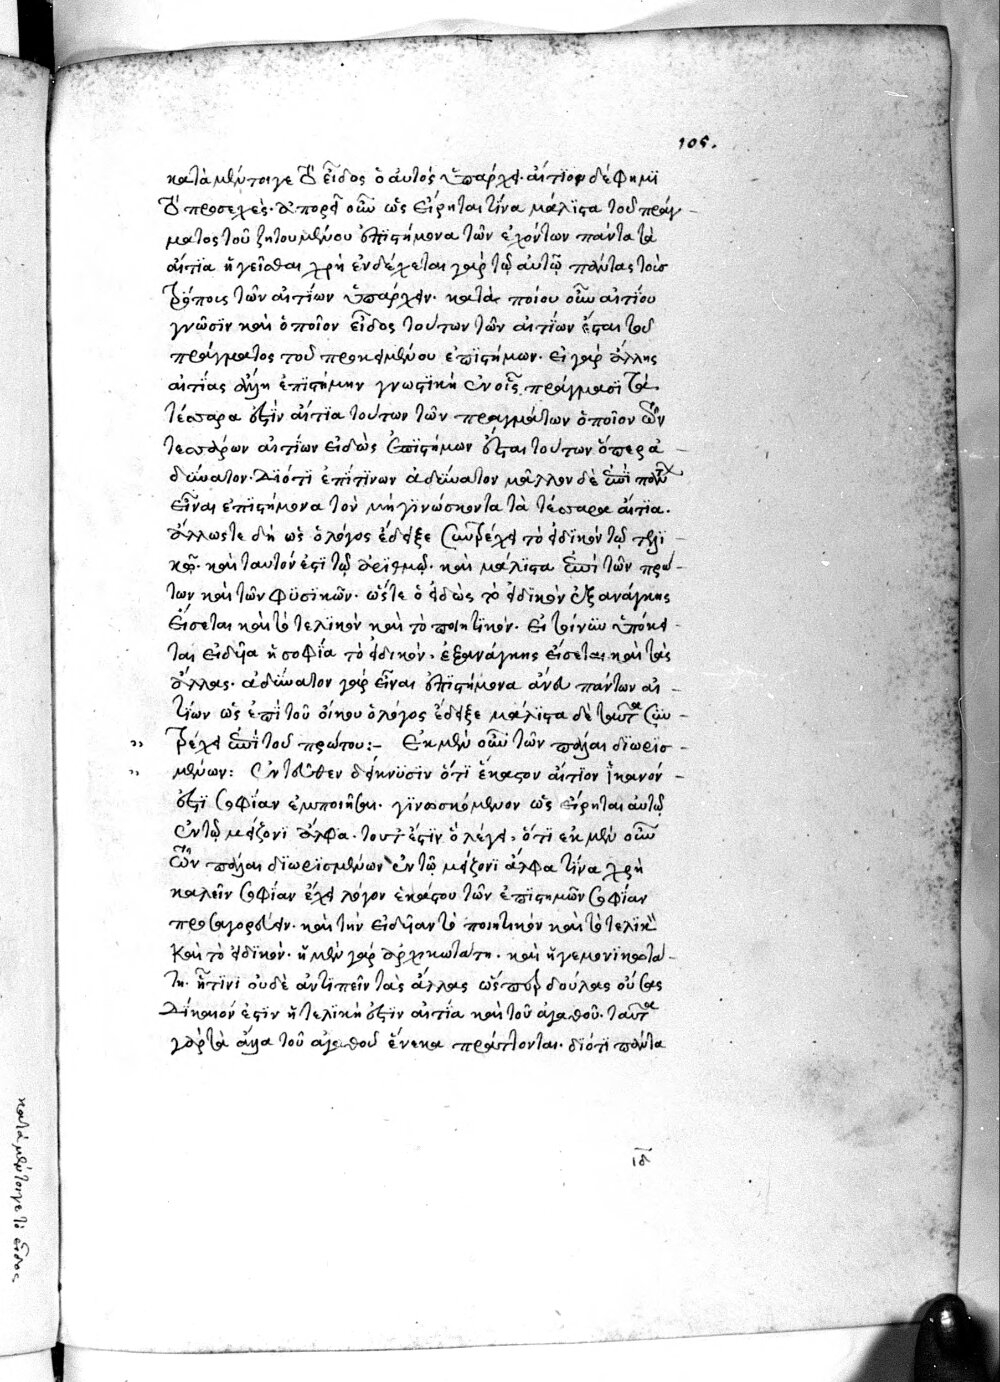 105.
κατὰ μέν τοιγε τὸ εἶδος ὁ αὐτὸς ὑπάρχει. αἴτιον δέ φημι
τὸ προσεχές. ἀπορεῖ οὖν ὡς εἴρηται τίνα μάλιστα τοῦ πράγ-
ματος τοῦ ζητουμένου ἐπιστήμονα τῶν ἐχόντων πάντα τὰ
αἴτια ἡγεῖσθαι χρὴ ἐνδέχεται γὰρ τῷ αὐτῷ πάντας τοὺς
τρόποις τῶν αἰτίων ὑπάρχειν. κατὰ ποίου οὖν αἰτίου
γνῶσιν καὶ ὁποῖον εἶδος τούτων τῶν αἰτίων ἔσται τοῦ
πράγματος τοῦ προκειμένου ἐπιστήμων. εἰ γὰρ ἄλλης
αἰτίας ἄλλη ἐπιστήμη γνωστικὴ ἐν οἷς πράγμασι τὰ
τέσσαρα ἐστὶν αἴτια τούτων τῶν πραγμάτων ὁποῖον τῶν
τεσσάρων αἰτίων εἰδὼς ἐπιστήμων ἔσται τούτων ὅπερ ἀ-
δύνατον. διότι ἐπί τινων ἀδύνατον μᾶλλον δὲ ἐπὶ πάντων
εἶναι ἐπιστήμονα τὸν μὴ γινώσκοντα τὰ τέσσαρα αἴτια.
ἄλλωστε δὴ ὡς ὁ λόγος ἔδειξε συντρέχει τὸ εἰδικὸν τῷ τελι-
κῷ. καὶ ταυτόν ἐστι τῷ ἀριθμῷ. καὶ μάλιστα ἐπὶ τῶν πρώ-
των καὶ τῶν φυσικῶν. ὥστε ὁ εἰδὼς τὸ εἰδικὸν ἐξ ἀνάγκης
εἴσεται καὶ τὸ τελικὸν καὶ τὸ ποιητικόν. εἰ τοίνυν ὑπόκει-
ται εἰδέναι ἡ σοφία τὸ εἰδικὸν. ἐξ ἀνάγκης εἴσεται καὶ τὰς
ἄλλας. ἀδύνατον γὰρ εἶναι ἐπιστήμονα ἄνευ πάντων αἰ-
τίων ὡς ἐπὶ τοῦ οἴκου ὁ λόγος ἔδειξε μάλιστα δὲ ταῦτα συν-
τρέχει ἐπὶ τοῦ πρώτου:- Ἐκ μὲν οὖν τῶν πάλαι διωρισ-
μένων: ἐντεῦθεν δείκνυσιν ὅτι ἕκαστον αἴτιον ἱκανόν
ἐστι σοφίαν ἐμποιῆσαι. γινωσκόμενον ὡς εἴρηται αὐτῷ
ἐν τῷ μείζονι ἄλφα. τουτέστιν ὃ λέγει, ὅτι ἐκ μὲν οὖν
τῶν πάλαι διωρισμένων ἐν τῷ μείζονι ἄλφα τίνα χρὴ
καλεῖν σοφίαν ἔχει λόγον ἑκάστου τῶν ἐπιστημῶν σοφίαν
προσαγορεύειν. καὶ τὴν εἰδέναι τὸ ποιητικὸν καὶ τὸ τελικὸν
καὶ τὸ εἰδικὸν. ἡ μὲν γὰρ ἀρχικωτάτη. καὶ ἡγεμονικωτά-
τη. ᾗτινι οὐδὲ ἀντιπεῖν τὰς ἄλλας ὥσπερ δούλας οὔσας
δίκαιόν ἐστιν ἡ τελική ἐστιν αἰτία καὶ τοῦ ἀγαθοῦ. ταύτης
γὰρ τὰ ἄλλα τοῦ ἀγαθοῦ ἕνεκα πράττονται. διότι πάντα
ιδ
κατὰ μέν τοιγε τὸ εἶδος